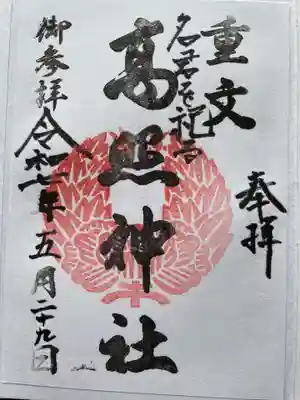 奉拝
重文
名君を祀る
高照神社
令和二年五月二十九日
御参拝